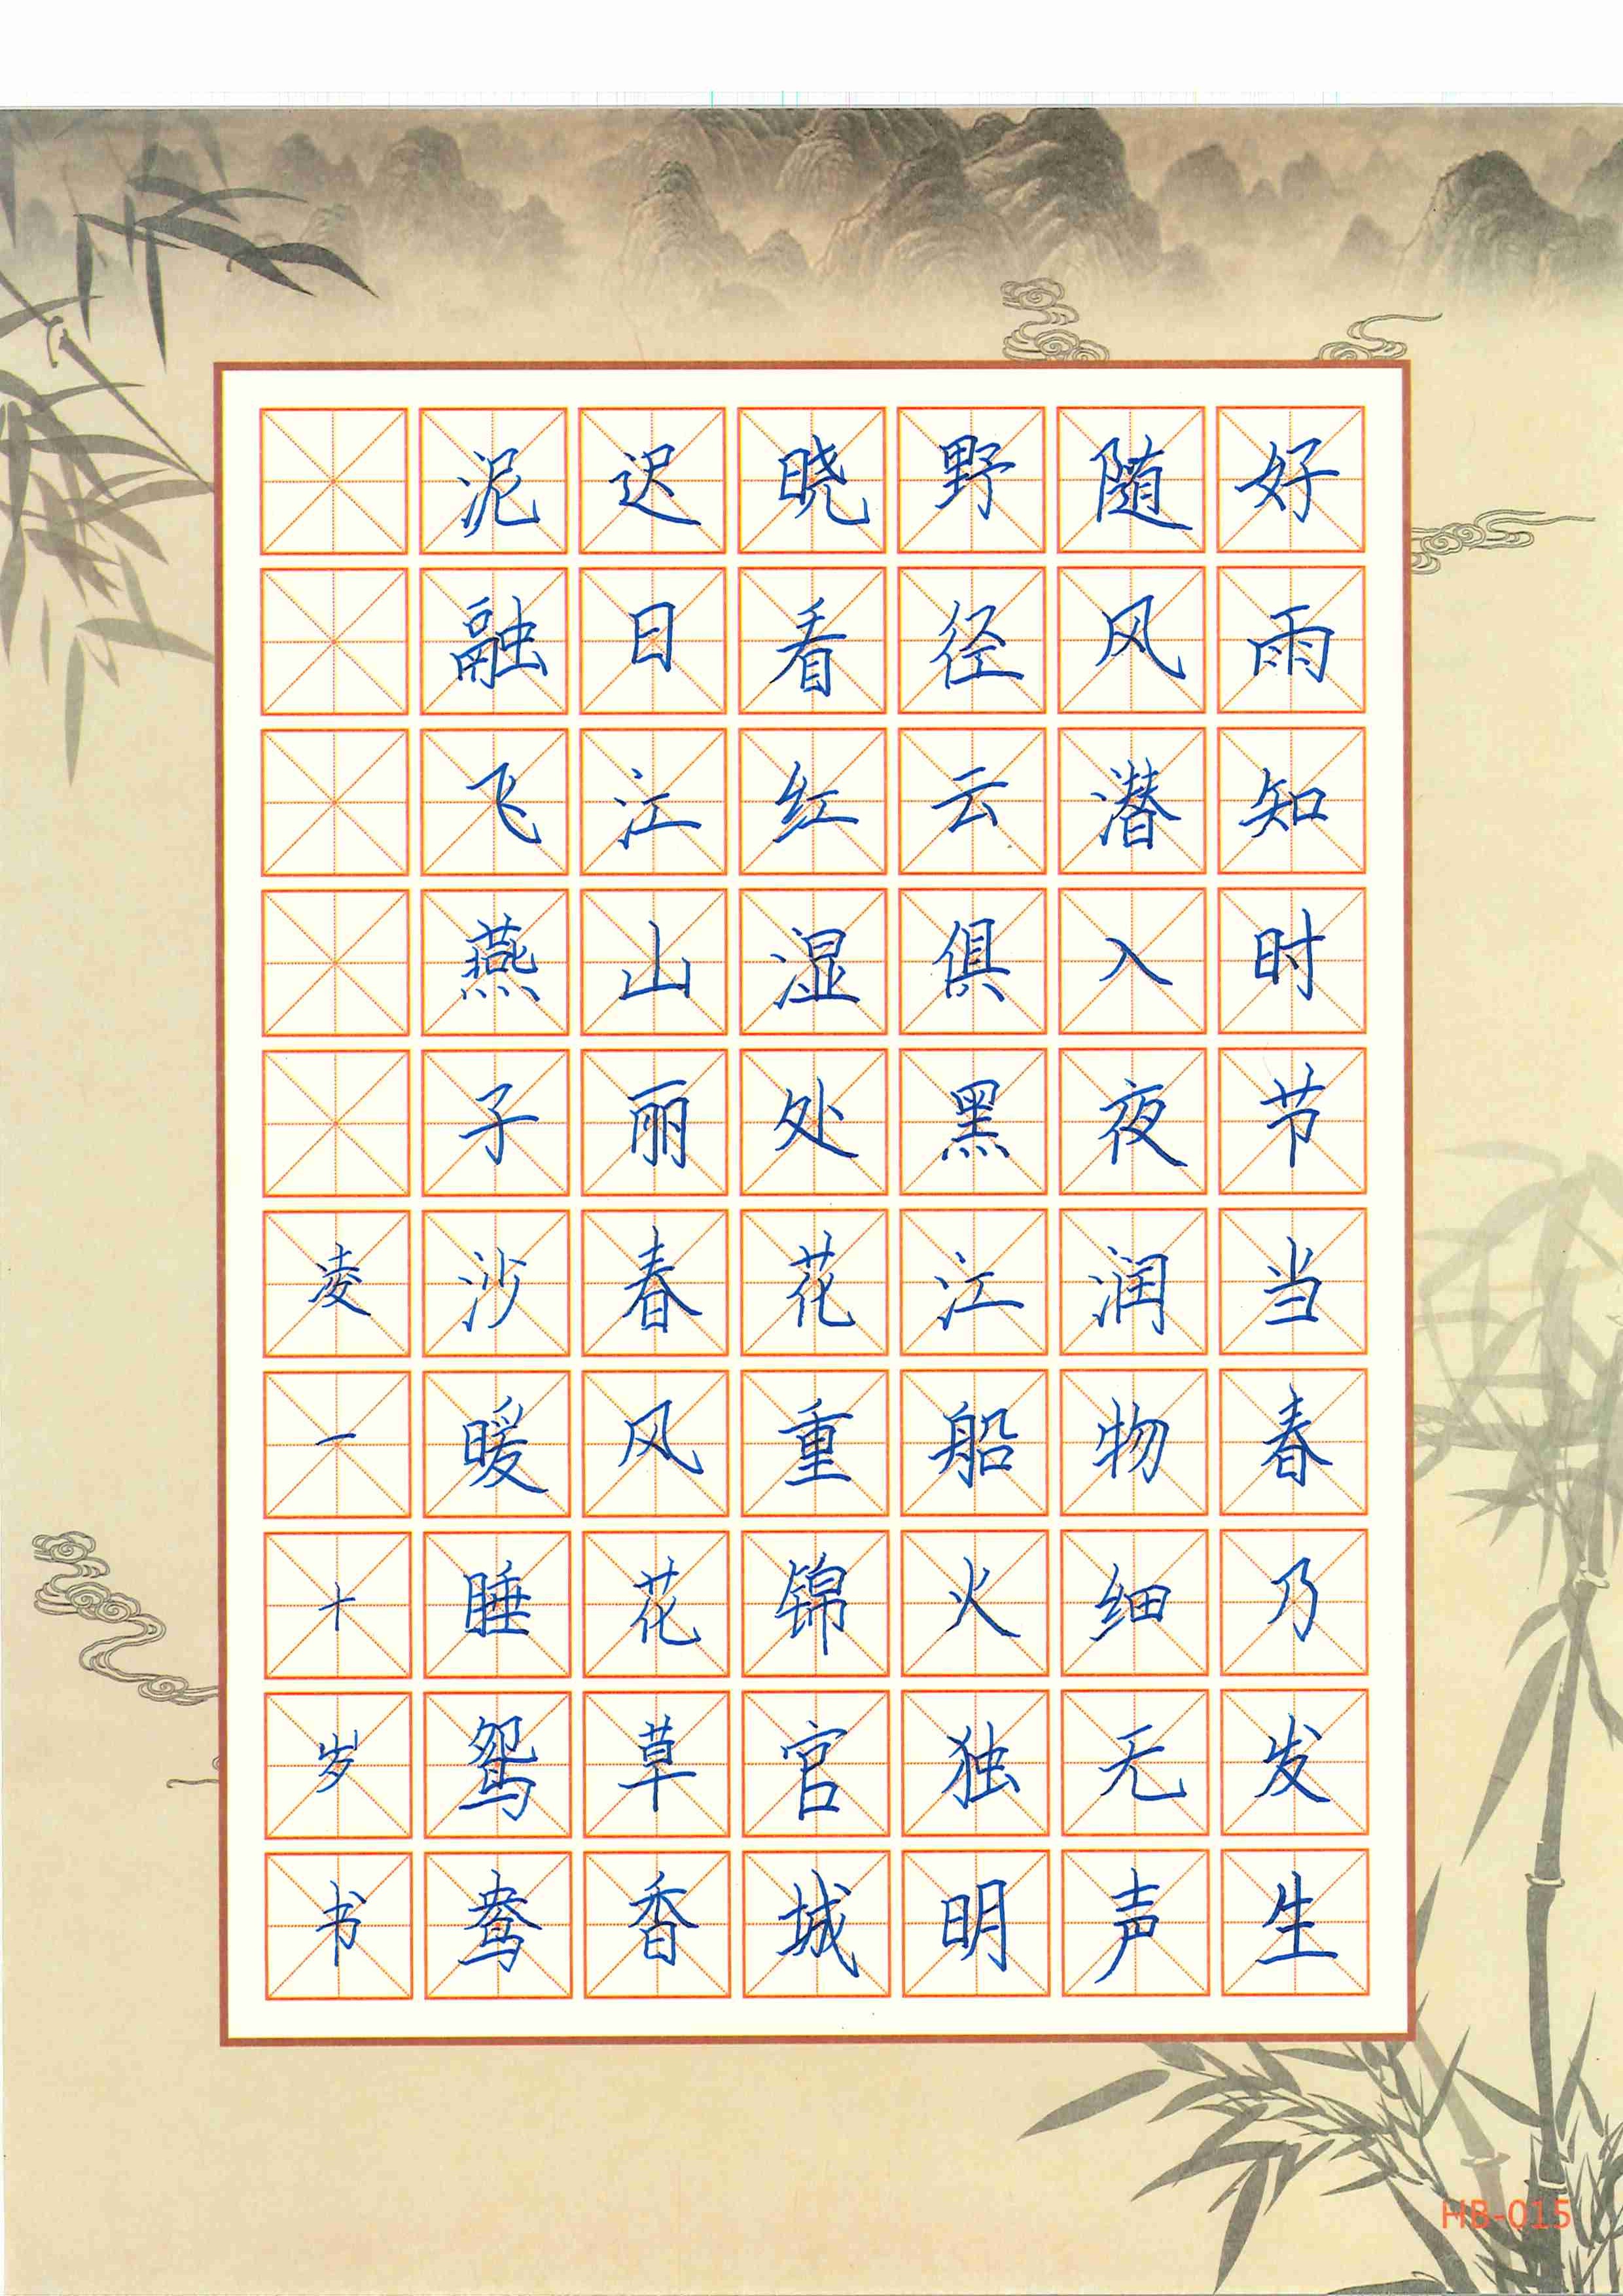 好雨知时节当春乃发生
随风潜入夜润物细无声
野径云俱黑江船火独明
晓看红湿处花重锦官城
迟日江山丽春风花草香
泥融飞燕子沙暖睡鸳鸯
凌一十岁书
HB-015